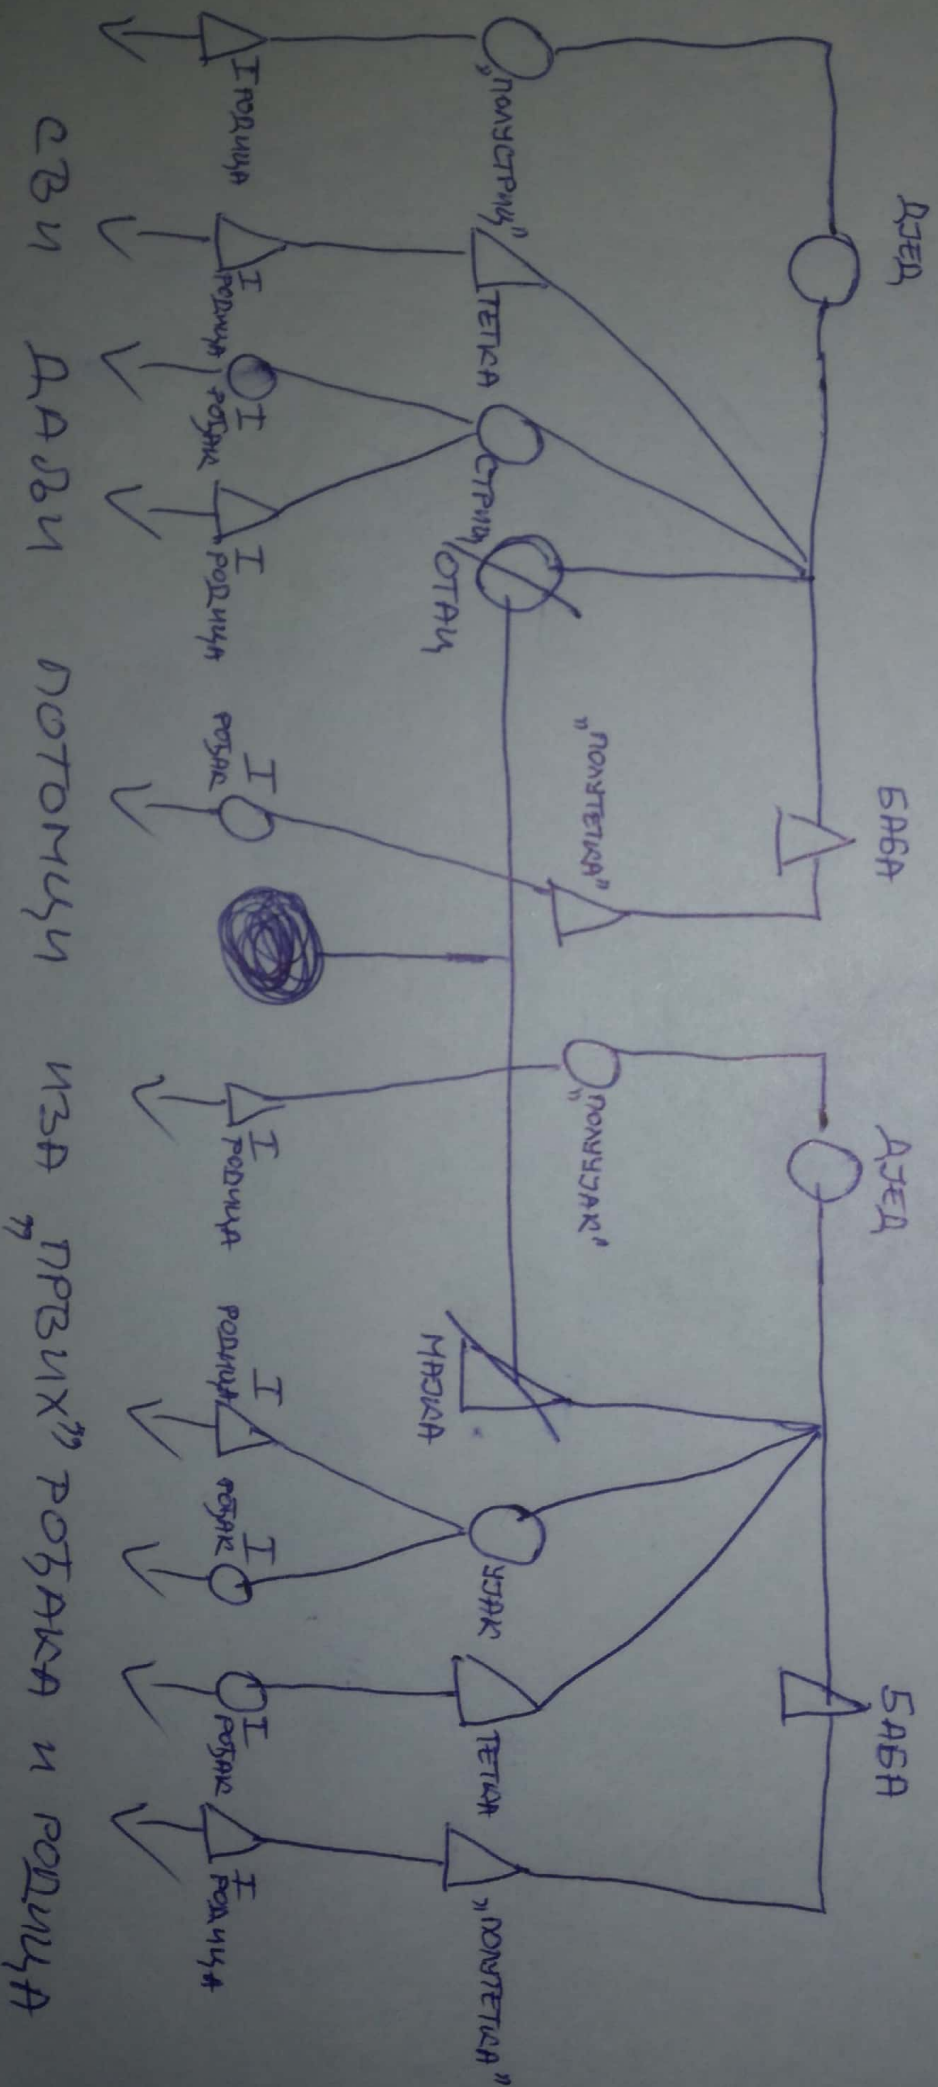 ДЈЕД
БАБА
ДЈЕД
БАБА
„ПОЛУСТРИЦ”
ТЕТКА
СТРИЦ
ОТАЦ
„ПОЛУТЕТКА”
„ПОЛУУЈАК”
МАЈКА
УЈАК
ТЕТКА
„ПОЛУТЕТКА”
I РОДИЦА
I
РОДИЦА
I
РОЂАК
I
РОДИЦА
I
РОЂАК
I
РОДИЦА
I
РОДИЦА
I
РОЂАК
I
РОЂАК
I
РОДИЦА
СВИ ДАЉИ ПОТОМЦИ ИЗА „ПРВИХ” РОЂАКА И РОДИЦА